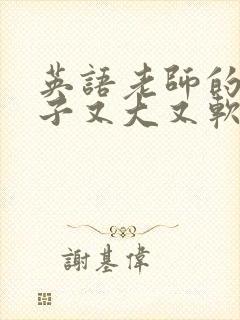 英語老師的
子又大又軟
謝基偉